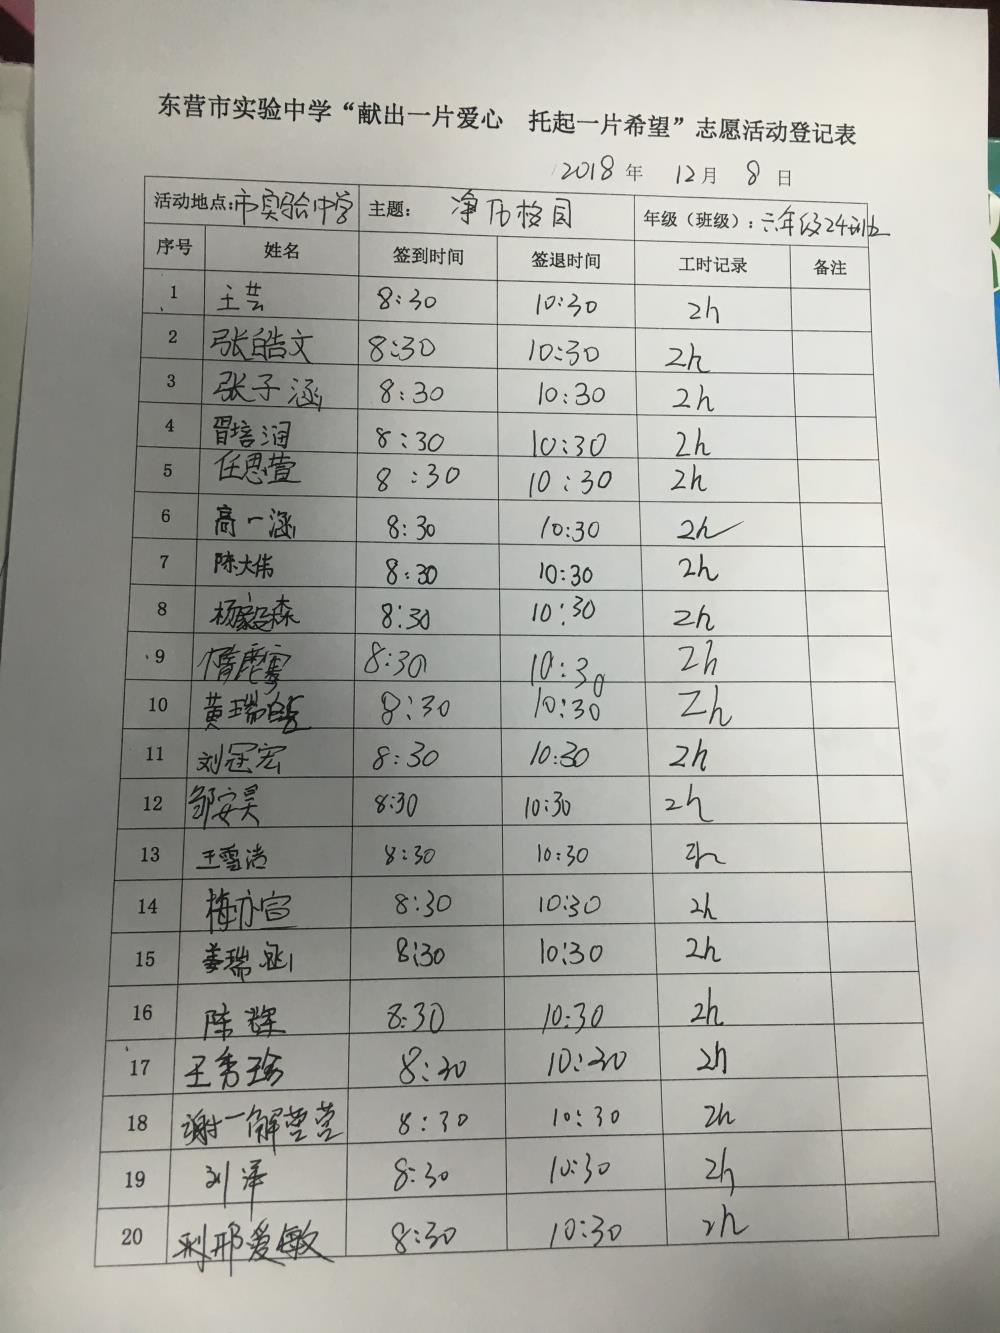 东营市实验中学“献出一片爱心 托起一片希望”志愿活动登记表
2018年 12月 8日
活动地点:市实验中学 主题: 净 校园 年级(班级):六年级24班
序号 姓名 签到时间 签退时间 工时记录 备注
1 王芸 8:30 10:30 2h
2 张皓文 8:30 10:30 2h
3 张子涵 8:30 10:30 2h
4 胥培润 8:30 10:30 2h
5 任思萱 8:30 10:30 2h
6 高一涵 8:30 10:30 2h
7 陈大伟 8:30 10:30 2h
8 杨毅森 8:30 10:30 2h
9 8:30 10:30 2h
10 黄瑞皓 8:30 10:30 2h
11 刘冠宏 8:30 10:30 2h
12 邹安昊 8:30 10:30 2h
13 王雪浩 8:30 10:30 2h
14 梅亦宣 8:30 10:30 2h
15 姜瑞 8:30 10:30 2h
16 陈辉 8:30 10:30 2h
17 王秀珍 8:30 10:30 2h
18 谢一 解莹莹 8:30 10:30 2h
19 刘泽 8:30 10:30 2h
20 邢爱敏 8:30 10:30 2h